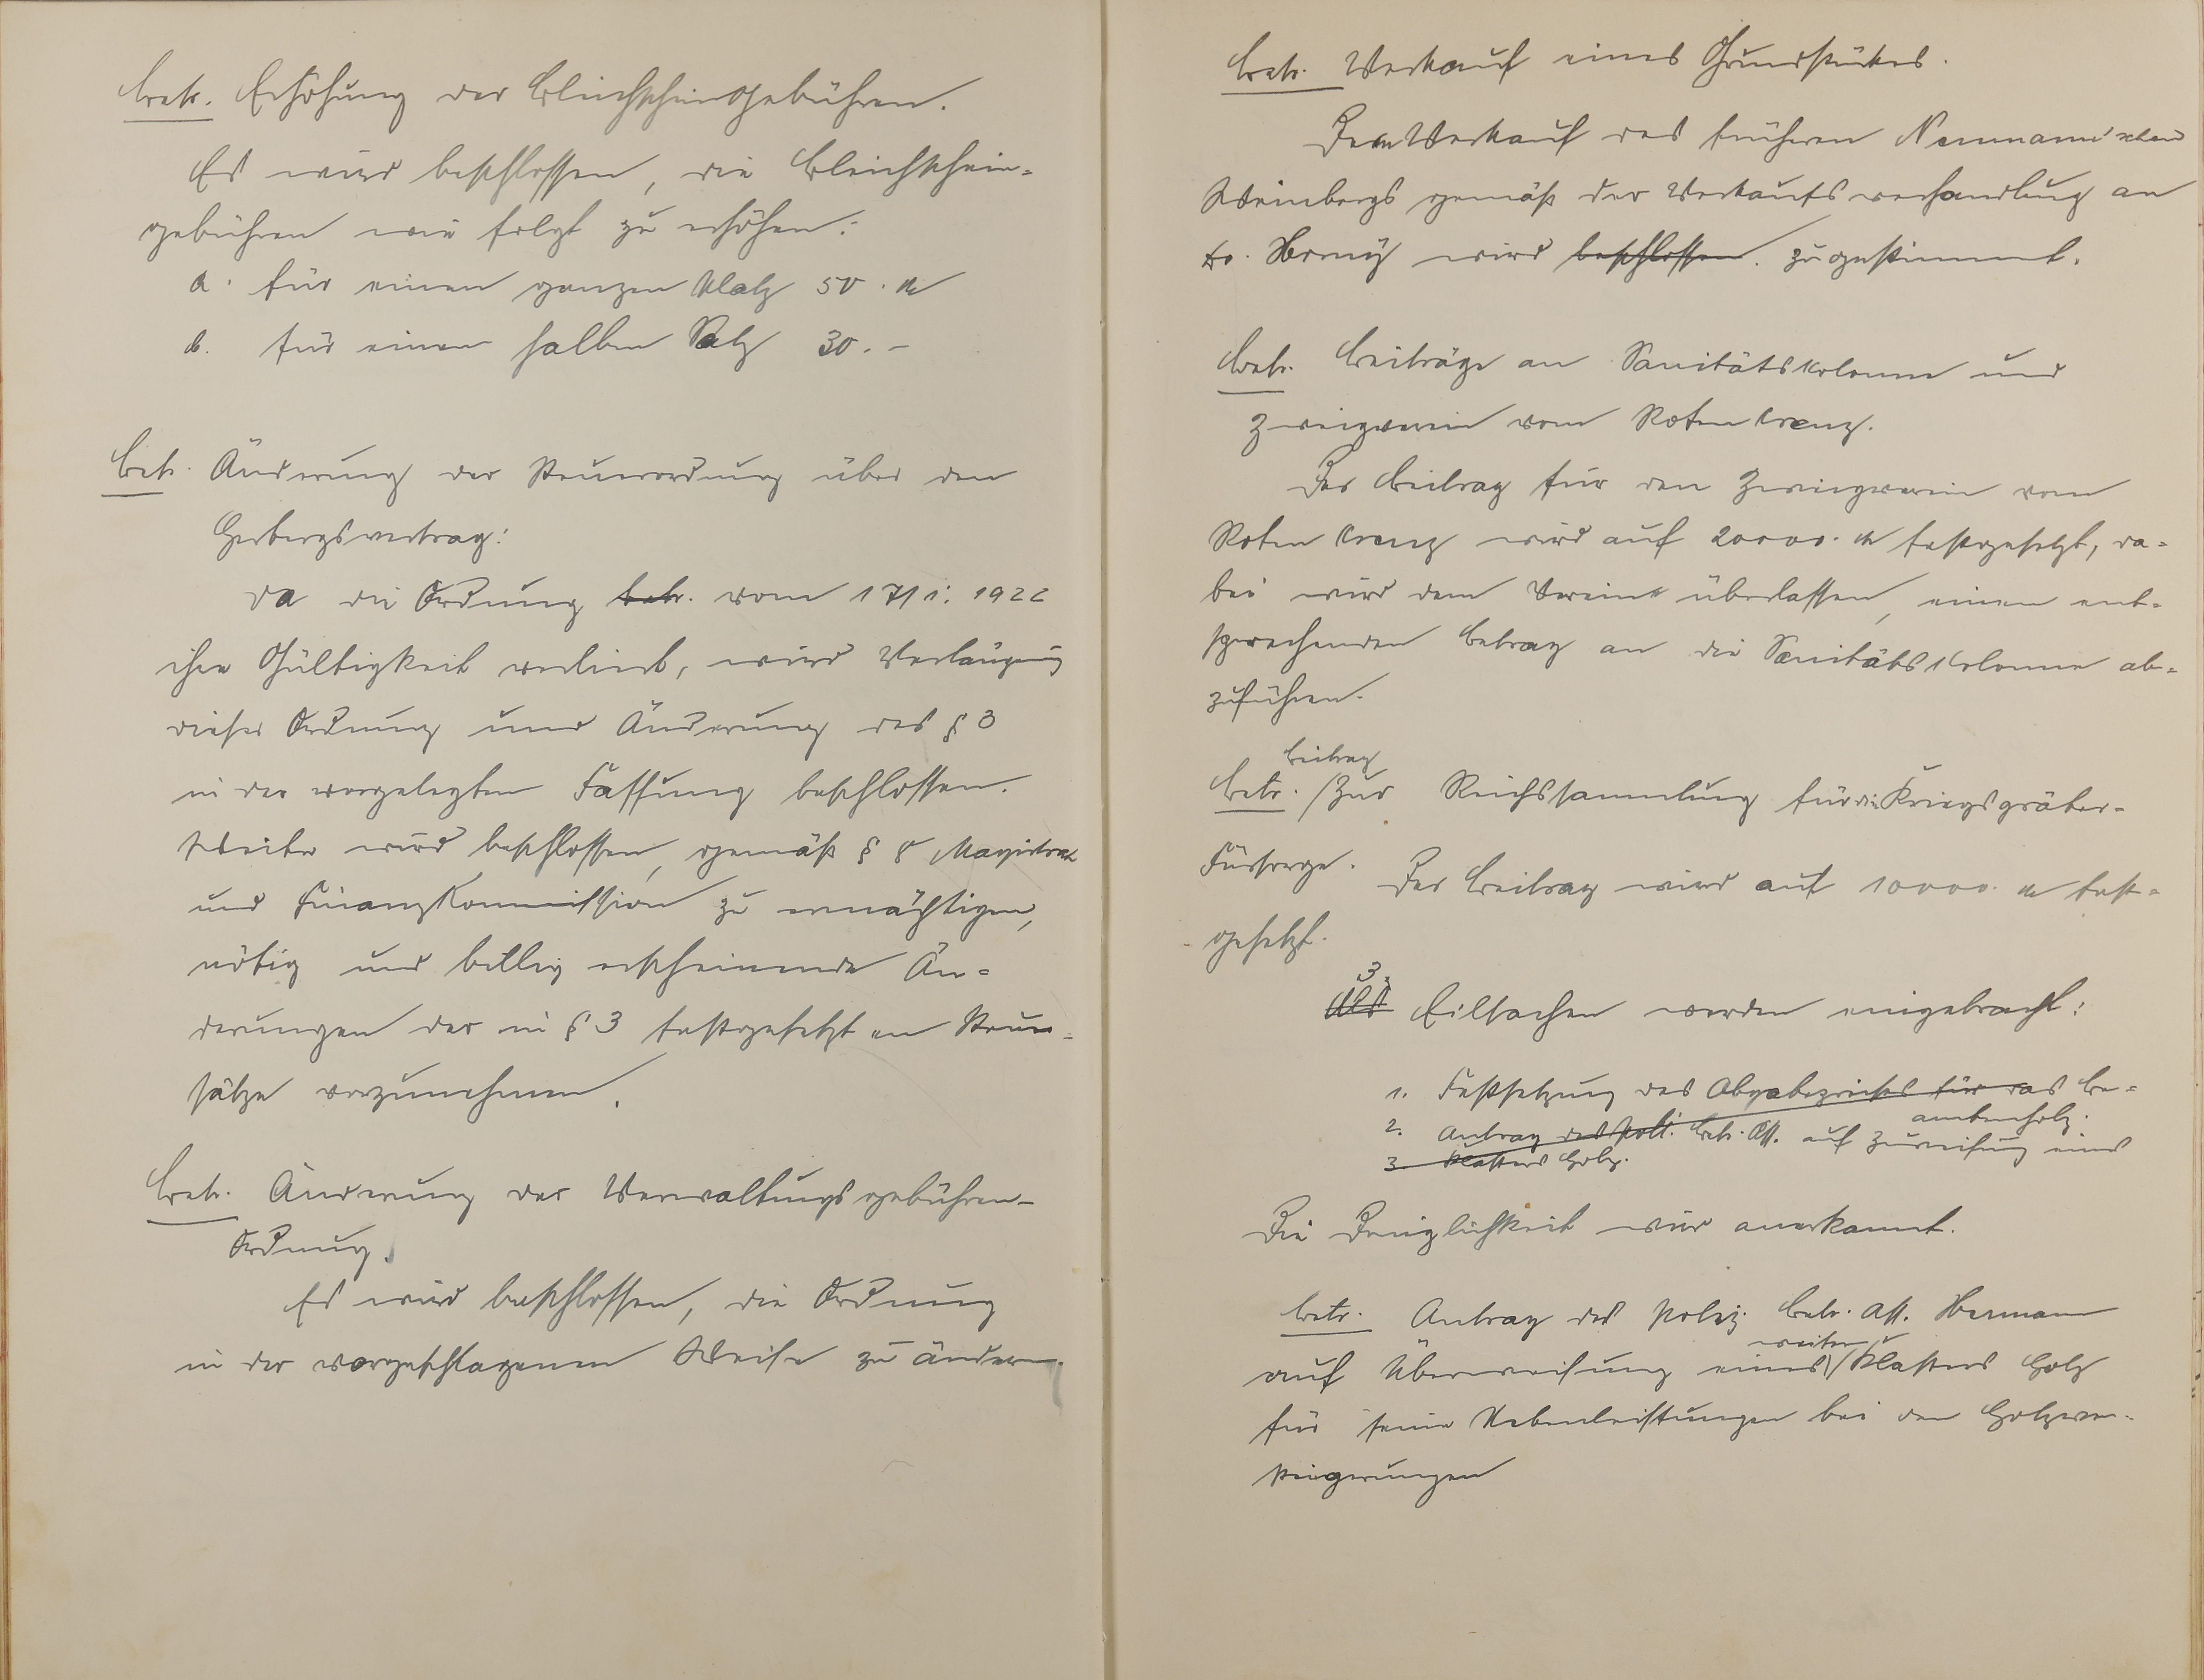 betr. Erhöhung der Bleichscheingebühren.
Es wird beschlossen, die Bleichschein-
gebühren wie folgt zu erhöhen:
a. für einen ganzen Platz 50. M
b. für einen halben Platz 30. –
betr. Änderung der Steuerordnung über den
Herbergsvertrag:
Da die Ordnung betr. vom 17/1. 1922
ihre Gültigkeit verliert, wird Verlängerung
dieser Ordnung und Änderung des § 3
in der vorgelegten Fassung beschlossen.
Weiter wird beschlossen, gemäß § 8 Magistrat
und Finanzkommission zu ermächtigen,
nötig und billig erscheinende Än-
derungen der in § 3 festgesetzten Steuer-
sätze vorzunehmen.
betr. Änderung der Verwaltungsgebühren-
Ordnung.
Es wird beschlossen, die Ordnung
in der vorgeschlagenen Weise zu ändern.
betr. Verkauf eines Grundstückes.
Dem Verkauf des früheren Neumann'schen
Weinbergs gemäß der Verkaufsverhandlung an
wird beschlossen. zugestimmt.
betr. Beiträge an Sanitätskolonne und
Zweigverein vom Roten Kreuz.
Der Beitrag für den Zweigverein vom
Roten Kreuz wird auf 20000. M festgesetzt, da-
bei wird dem Verein überlassen, einen ent-
sprechenden Betrag an die Sanitätskolonne ab-
zuführen.
Beitrag
betr. / Zur Reichssammlung für die Kriegsgräber-
Fürsorge. Der Beitrag wird auf 10000. M fest-
gesetzt.
3
Als Eilsachen werden eingebracht:
1. Festsetzung des Abgabepreises für das Be-
amtenholz.
2. Antrag des Poli. Betr. Ass. auf Zuweisung eines
3. Klafters Holz.
Die Dringlichkeit wird anerkannt.
betr. Antrag des Poliz. Betr. Ass. Hermann
weiteren
auf Überweisung eines / Klafters Holz
für seine Nebenleistungen bei den Holzver-
steigerungen